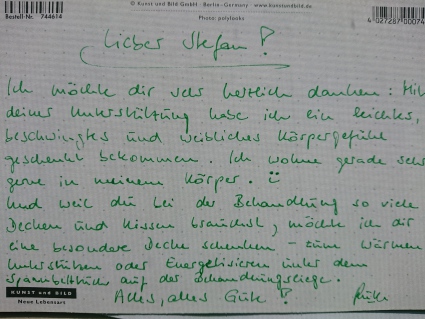 © Kunst und Bild GmbH - Berlin - Germany www.kunstundbild.de
Bestell-Nr. 744614
Photo: polylooks
4 027287 00074
Lieber Stefan!
Ich möchte dir sehr herzlich danken: Mit
deiner Unterstützung habe ich ein leichtes,
beschwingtes und weibliches Körpergefühl
geschenkt bekommen. Ich wohne gerade sehr
gerne in meinem Körper.
Und weil du bei der Behandlung so viele
Decken und Kissen brauchst, möchte ich dir
eine besondere Decke schenken - zum Wärmen
Unterstützen oder Energetisieren unter dem
Spannbetttuch auf der Behandlungsliege.
Alles, alles Gute!
KUNST und BILD
Neue Lebensart